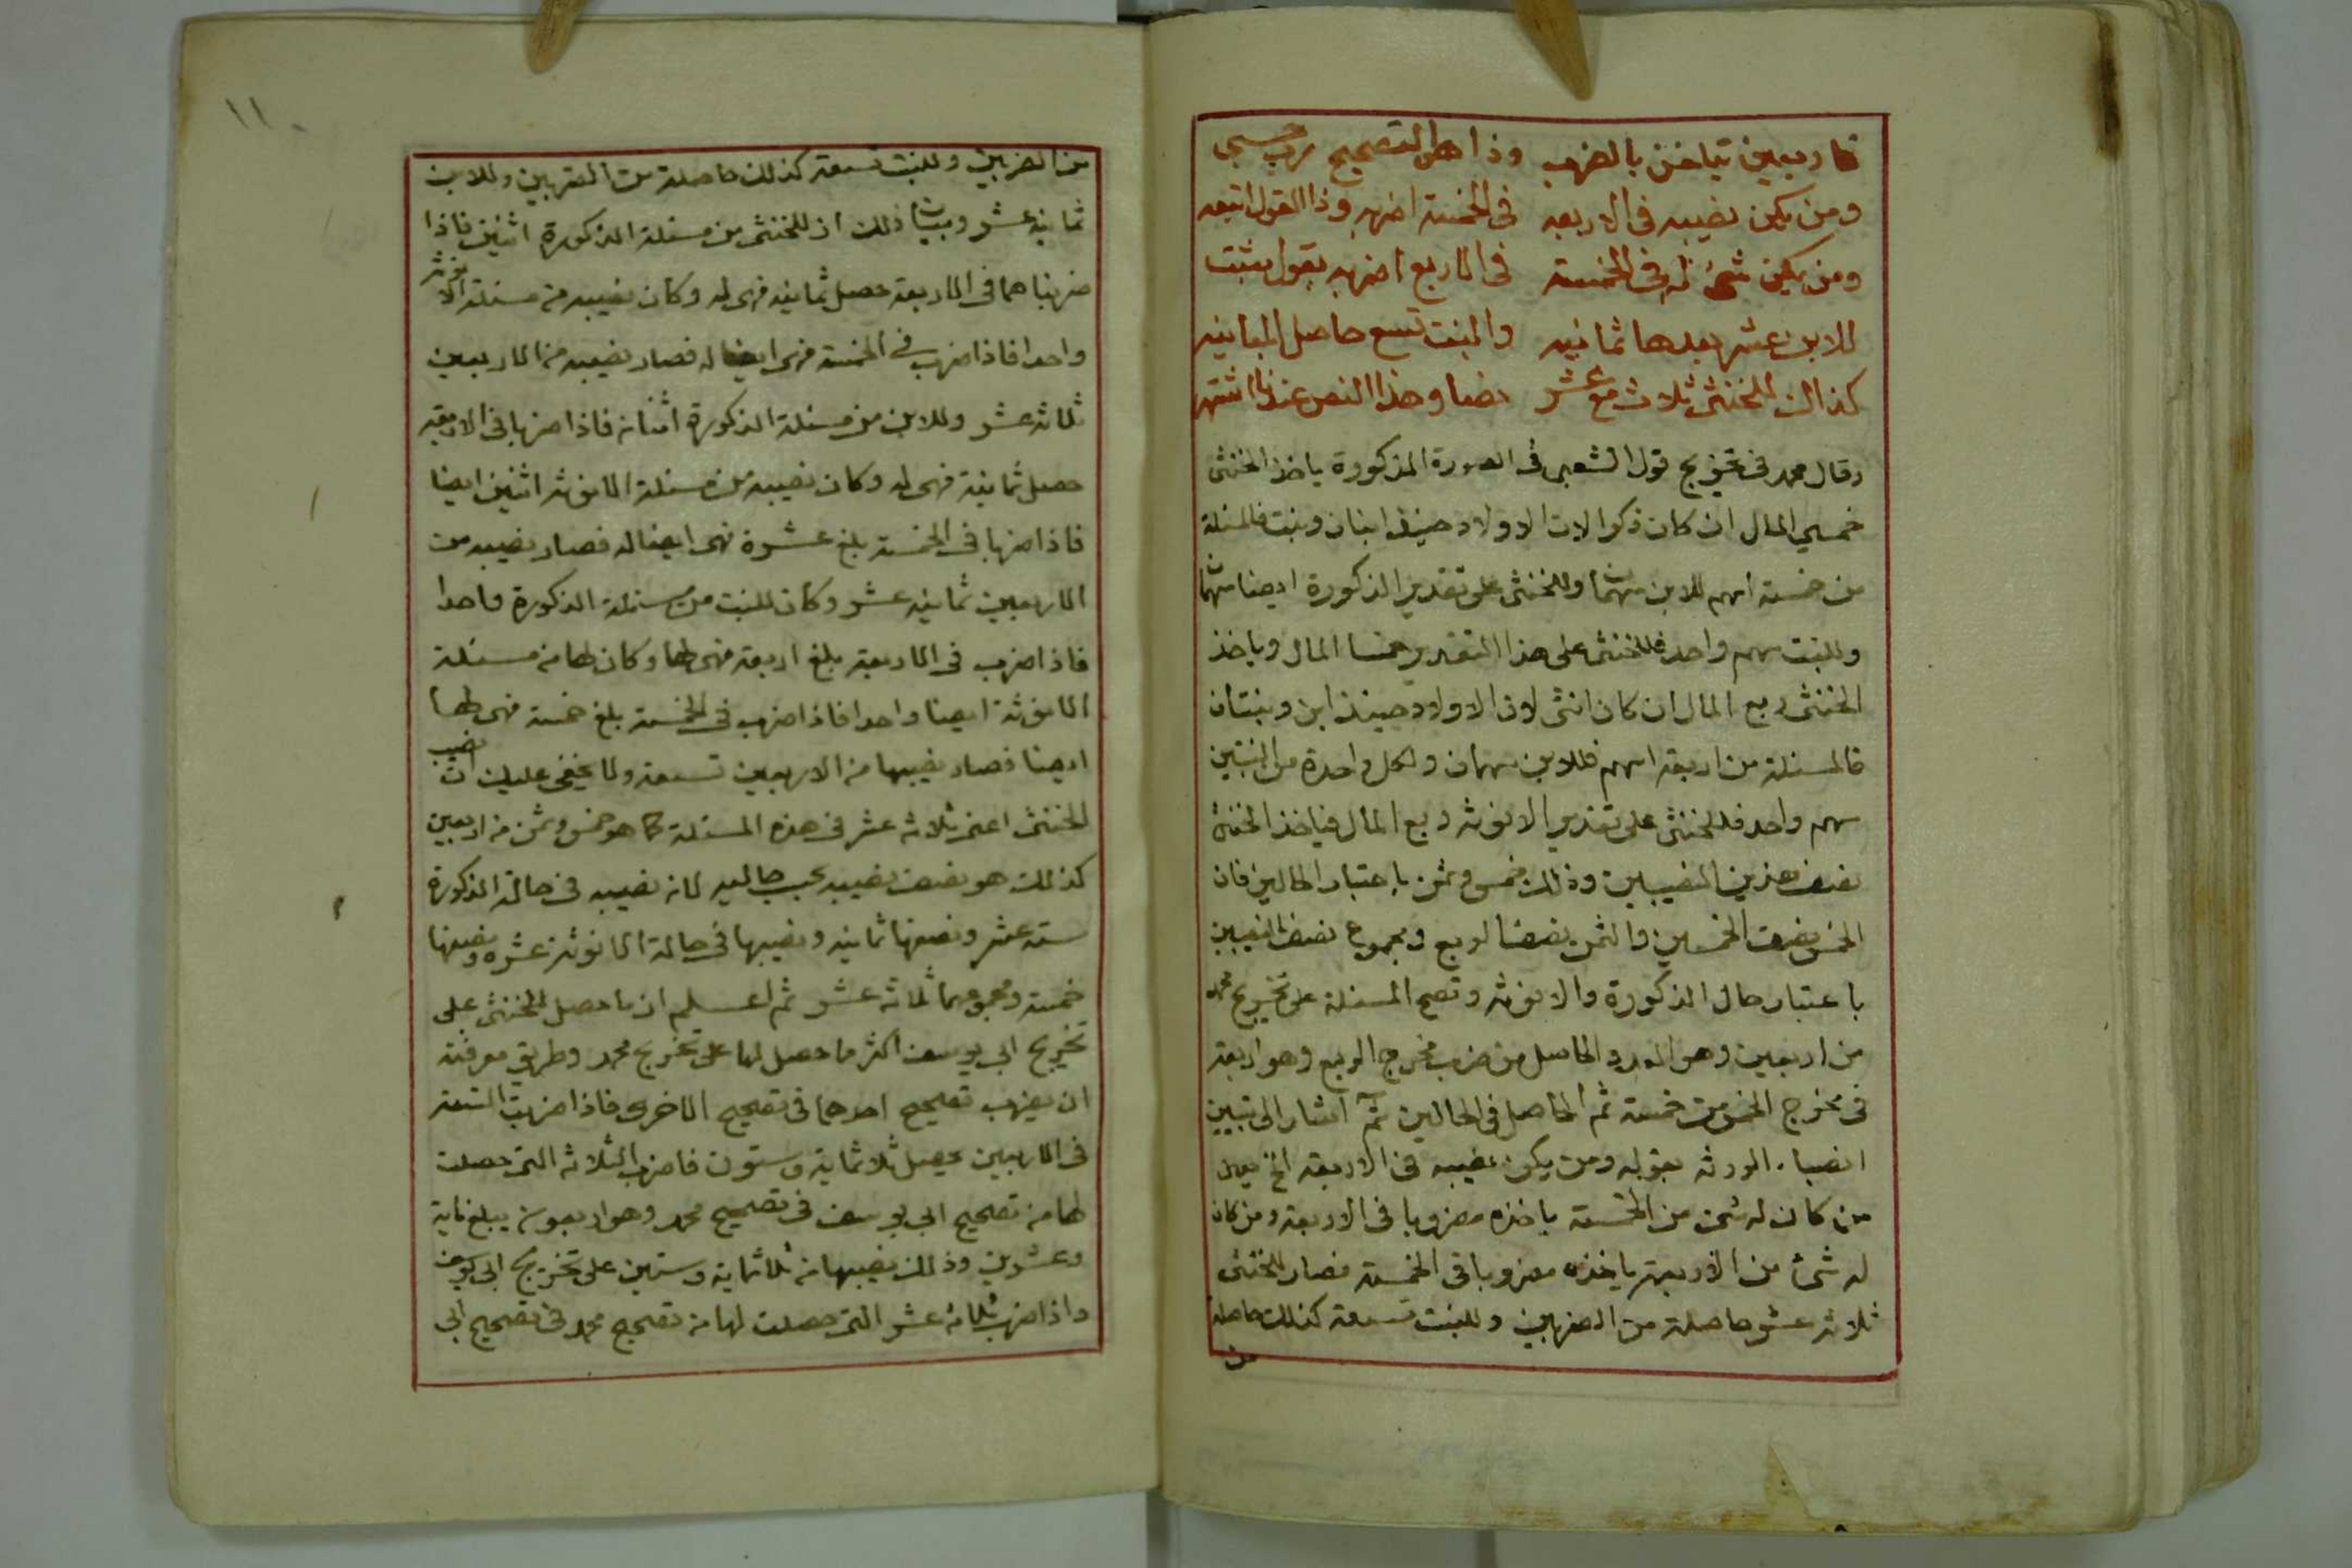 فاربعين تباخن بالضرب وذا هو التصحيح
ومن يكن نصيبه فى الاربعه فى الخمسة اضربه وذا القول اتبعه
ومن يكن شئ له فى الخمسة فى الاربع اضربه بقول مثبت
للابن عشر بعدها ثمانيه والبنت تسع حاصل المباينه
كذاك للخنثى ثلاث مع عشر وهذا النص عندنا اشتهر
وقال محمد فى تخريج قول الشعبى فى الصورة المذكورة ياخذ الخنثى
خمسي المال ان كان ذكرا لان الاولاد حينئذ ابنان وبنت فالمسئلة
من خمسة اسهم للابن سهمان وللخنثى على تقدير الذكورة ايضا سهمان
وللبنت سهم واحد فللخنثى على هذا التقدير خمسا المال وياخذ
الخنثى ربع المال ان كان انثى لان الاولاد حينئذ ابن وبنتان
فالمسئلة من اربعة اسهم فللابن سهمان ولكل واحدة من البنتين
سهم واحد فللخنثى على تقدير الانوثه ربع المال فياخذ الخنثى
نصف هذين النصيبين وذلك خمس وثمن باعتبار الحالين فان
الخمس نصف الخمسين والثمن نصف الربع ومجموع نصف النصيبين
باعتبار حال الذكورة والانوثه وتصح المسئلة على تخريج محمد
من اربعين وهو العدد الحاصل من ضرب مخرج الربع وهو اربعة
فى مخرج الخمس خمسة ثم الحاصل فى الحالين ثم اشار الى تبيين
انصباء الورثه بقوله ومن يكن نصيبه فى الاربعه الخ يعنى
من كان له شئ من الخمسة ياخذه مضروبا فى الاربعة ومن كان
له شئ من الاربعة ياخذه مضروبا فى الخمسة فصار للخنثى
ثلاثه عشر حاصلة من الضربين وللبنت تسعة كذلك حاصلة
من
١١٠
من الضربين وللبنت تسعة كذلك حاصلة من الضربين وللابن
ثمانيه عشر وبيان ذلك ان للخنثى من مسئلة الذكورة اثنين فاذا
ضربناهما فى الاربعة حصل ثمانيه فهى له وكان نصيبه من مسئلة الانوثه
واحدا فاذا ضرب فى الخمسة فهى ايضا له فصار نصيبه من الاربعين
ثلاثه عشر وللابن من مسئلة الذكورة اثنان فاذا ضربا فى الاربعة
حصل ثمانية فهى له وكان نصيبه من مسئلة الانوثه اثنين ايضا
فاذا ضربا فى الخمسة بلغ عشرة فهى ايضا له فصار نصيبه من
الاربعين ثمانيه عشر وكان للبنت من مسئلة الذكورة واحدا
فاذا ضرب فى الاربعة بلغ اربعة فهى لها وكان لها من مسئلة
الانوثة ايضا واحدا فاذا ضرب فى الخمسة بلغ خمسة فهى لها
ايضا فصار نصيبها من الاربعين تسعة ولا يخفى عليك ان نصيب
الخنثى اعنى ثلاثه عشر فى هذه المسئلة كما هو خمس وثمن من اربعين
كذلك هو نصف نصيبه بحسب حاليه لان نصيبه فى حالة الذكورة
ستة عشر ونصفها ثمانيه ونصيبها فى حالة الانوثة عشره ونصفها
خمسة ومجموعهما ثلاثه عشر ثم اعلم ان ما حصل للخنثى على
تخريج ابى يوسف اكثر ما حصل لها على تخريج محمد وطريق معرفته
ان يضرب تصحيح احدهما فى تصحيح الاخرى فاذا ضربت التسعة
فى الاربعين يحصل ثلاثماية وستون فاضرب الثلاثه التى حصلت
لها من تصحيح ابى يوسف فى تصحيح محمد وهو اربعون يبلغ ماية
وعشرين وذلك نصيبها من ثلاثماية وستين على تخريج ابى يوسف
واذا ضرب ثلاثه عشر التى حصلت لها من تصحيح محمد فى تصحيح ابى